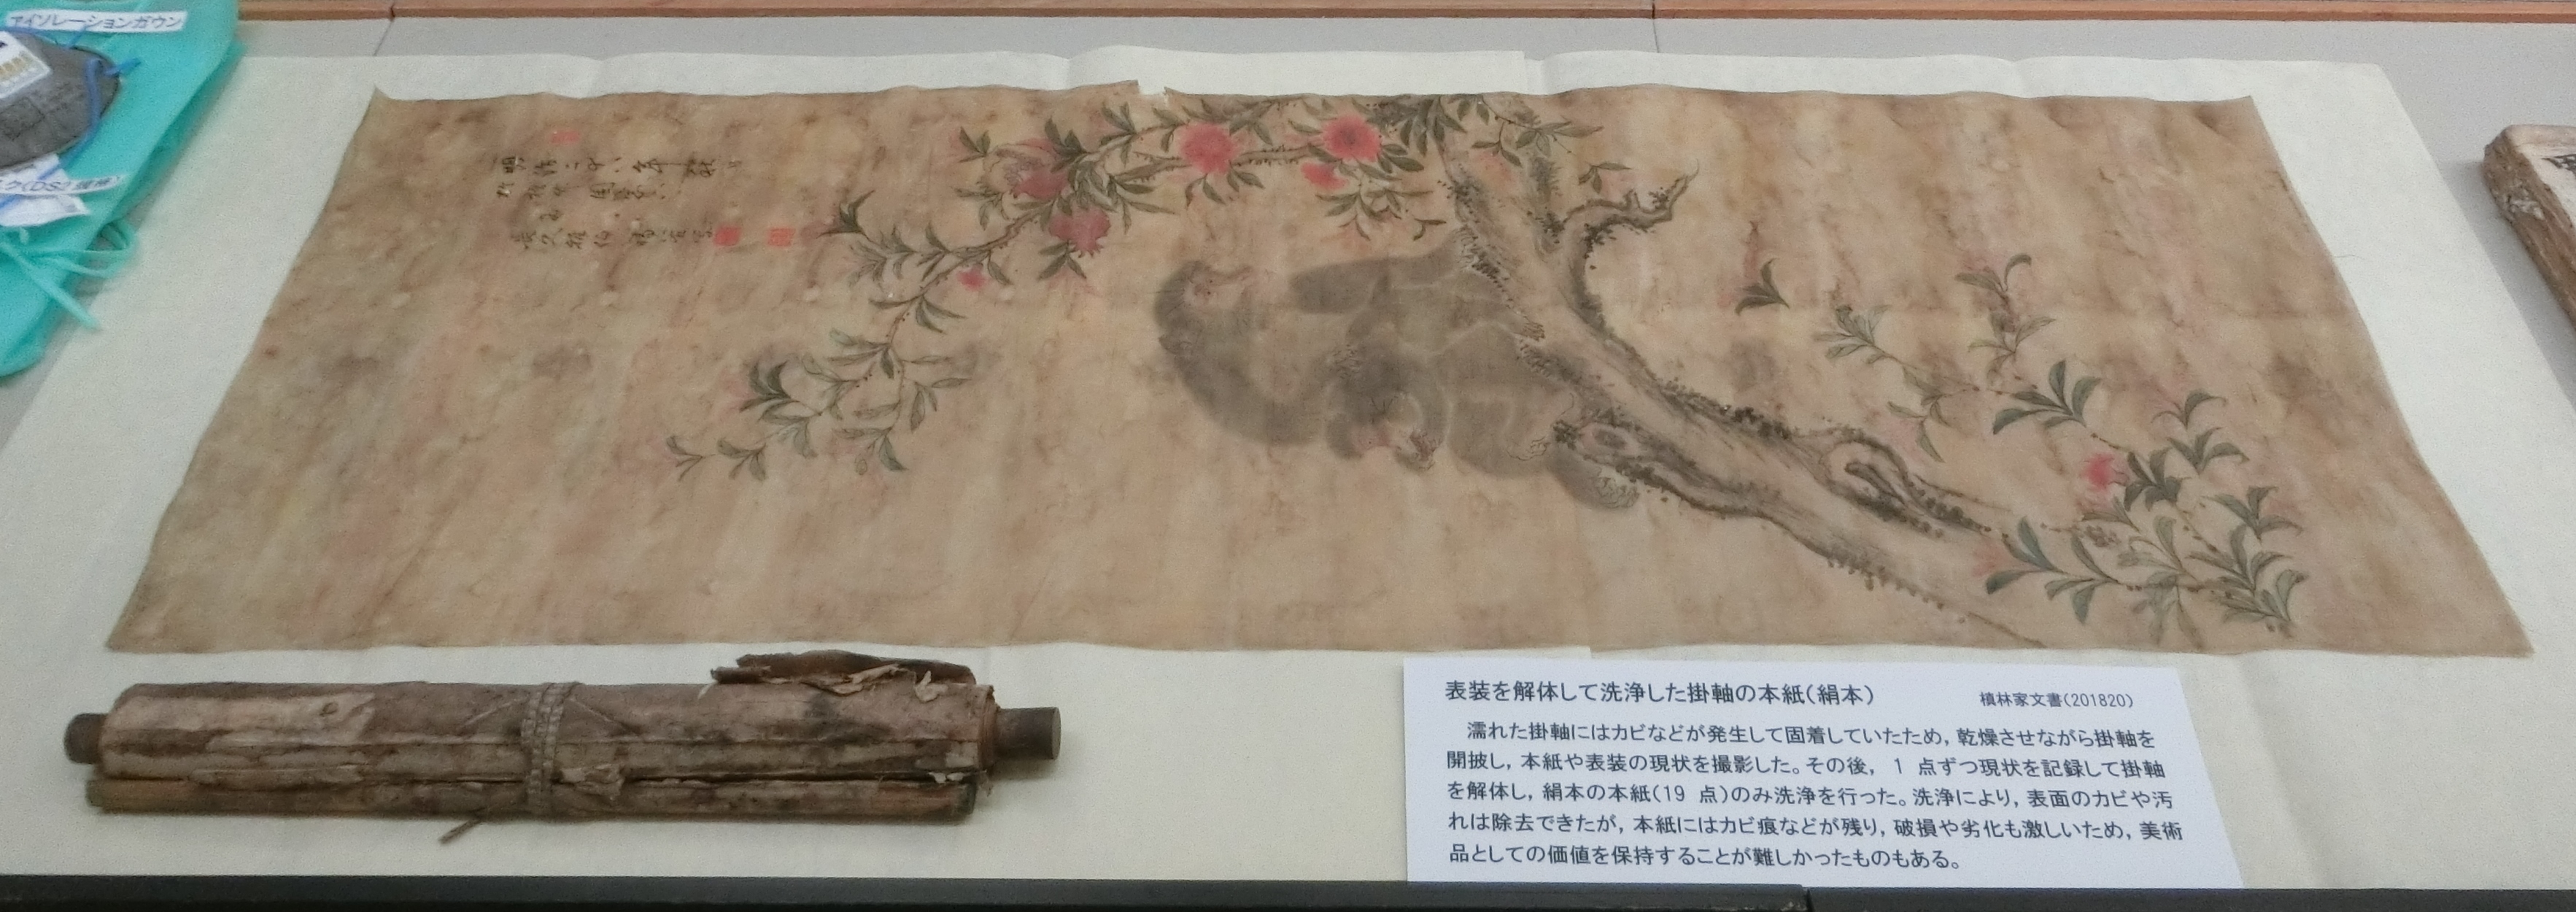 アイソレーションガウン
表装を解体して洗浄した掛軸の本紙(絹本) 槙林家文書(201820)
濡れた掛軸にはカビなどが発生して固着していたため,乾燥させながら掛軸を
開披し,本紙や表装の現状を撮影した。その後, 1 点ずつ現状を記録して掛軸
を解体し,絹本の本紙(19 点)のみ洗浄を行った。洗浄により,表面のカビや汚
れは除去できたが,本紙にはカビ痕などが残り,破損や劣化も激しいため,美術
品としての価値を保持することが難しかったものもある。